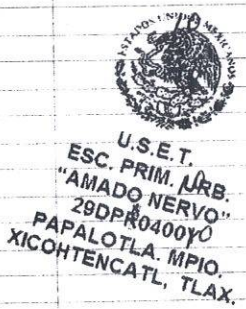 ESTADOS UNIDOS MEXICANOS
U.S.E.T.
ESC. PRIM. URB.
"AMADO NERVO"
29DPR0400
PAPALOTLA. MPIO.
XICOHTENCATL, TLAX.